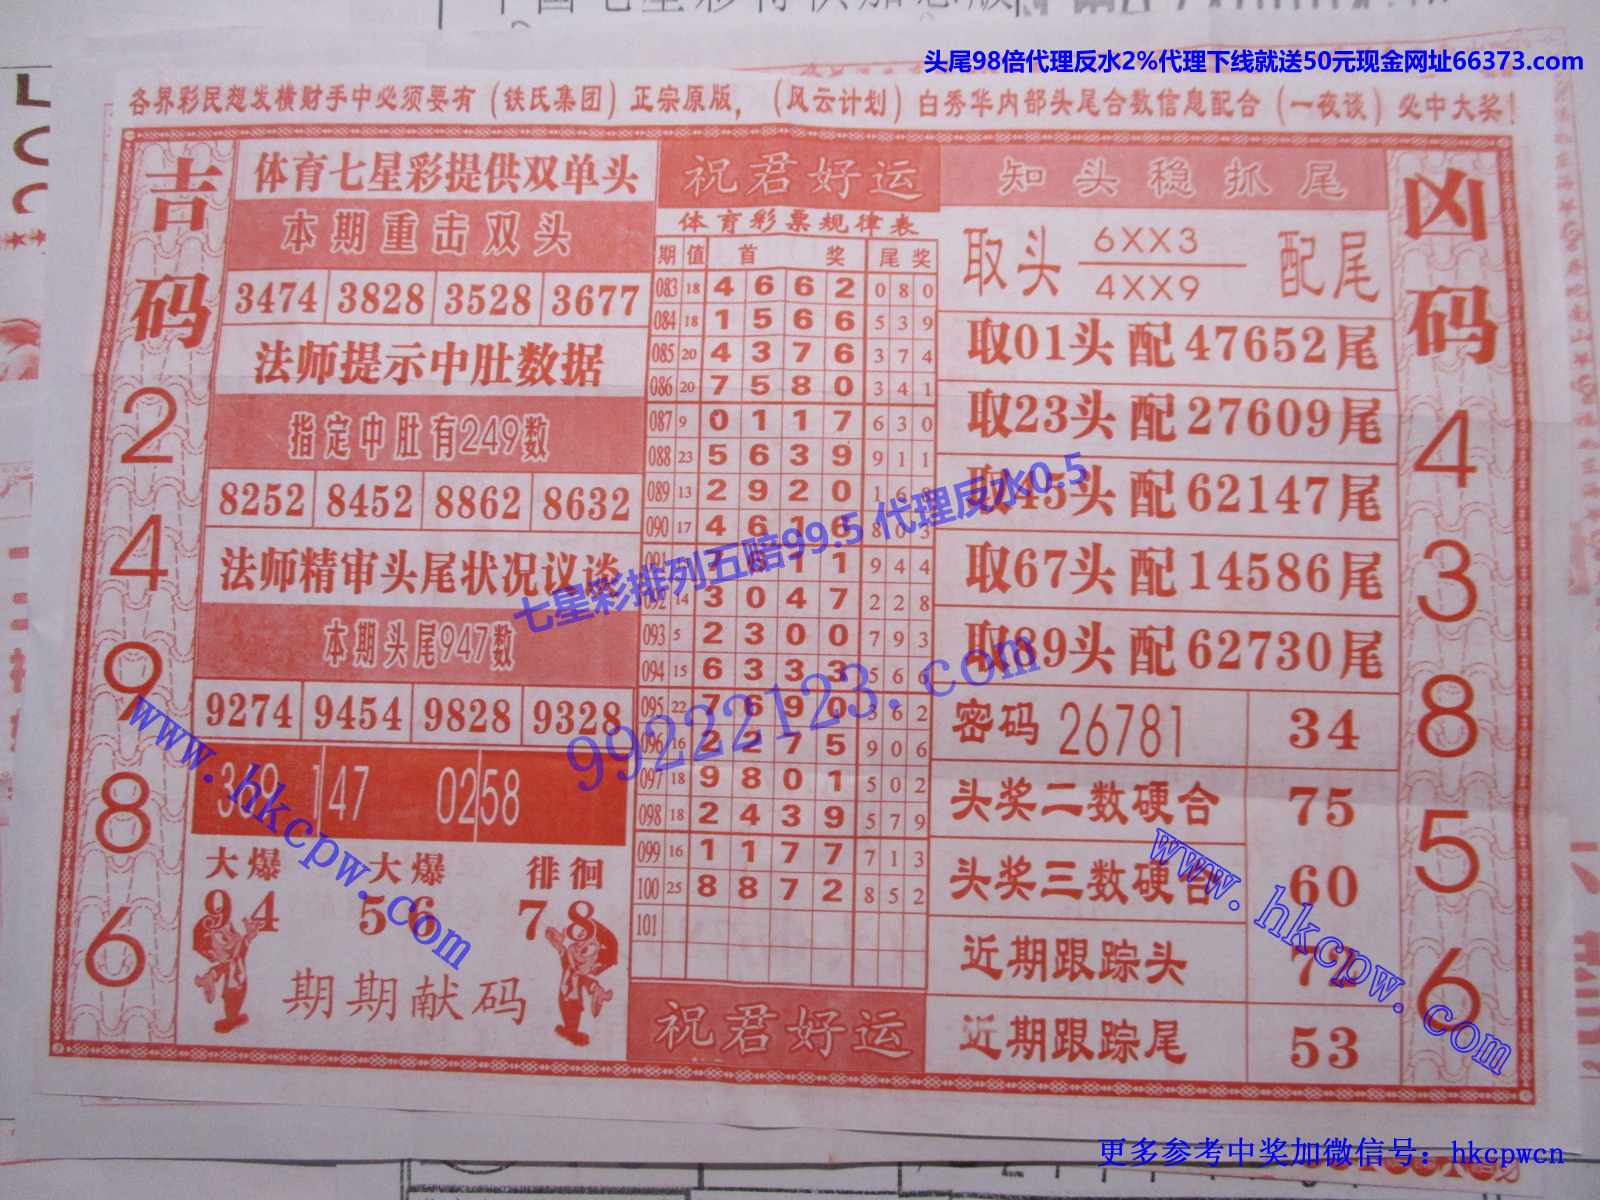 头尾98倍代理反水2%代理下线就送50元现金网址66373.com
各界彩民想发横财手中必须要有(铁氏集团)正宗原版,(风云计划)白秀华内部头尾合数信息配合(一夜谈)必中大奖!
吉码
2
4
9
8
6
体育七星彩提供双单头
本期重击双头
3474 3828 3528 3677
法师提示中肚数据
指定中肚有249数
8252 8452 8862 8632
法师精审头尾状况议谈
本期头尾947数
9274 9454 9828 9328
369 147 0258
大爆 大爆 徘徊
94 56 78
期期献码
祝君好运
体育彩票规律表
期 值 首 奖 尾 奖
083 18 4 6 6 2 0 8 0
084 18 1 5 6 6 5 3 9
085 20 4 3 7 6 3 7 4
086 20 7 5 8 0 3 4 1
087 9 0 1 1 7 6 3 0
088 23 5 6 3 9 9 1 1
089 13 2 9 2 0 1 6
090 17 4 6 1 6 8 0 3
091 7 8 1 1 9 4 4
092 14 3 0 4 7 2 2 8
093 5 2 3 0 0 7 9 3
094 15 6 3 3 3 5 6 6
095 22 7 6 9 0 3 6 2
096 16 2 2 7 5 9 0 6
097 18 9 8 0 1 5 0 2
098 18 2 4 3 9 5 7 9
099 16 1 1 7 7 7 1 3
100 25 8 8 7 2 8 5 2
101
祝君好运
知头稳抓尾
取头 6XX3 配尾
4XX9
取01头配47652尾
取23头配27609尾
取45头配62147尾
取67头配14586尾
取89头配62730尾
密码 26781 34
头奖二数硬合 75
头奖三数硬合 60
近期跟踪头 72
近期跟踪尾 53
凶码
4
3
8
5
6
七星彩排列五赔99.5 代理反水0.5
99222123.com
www.hkcpw.com
www.hkcpw.com
更多参考中奖加微信号：hkcpwcn